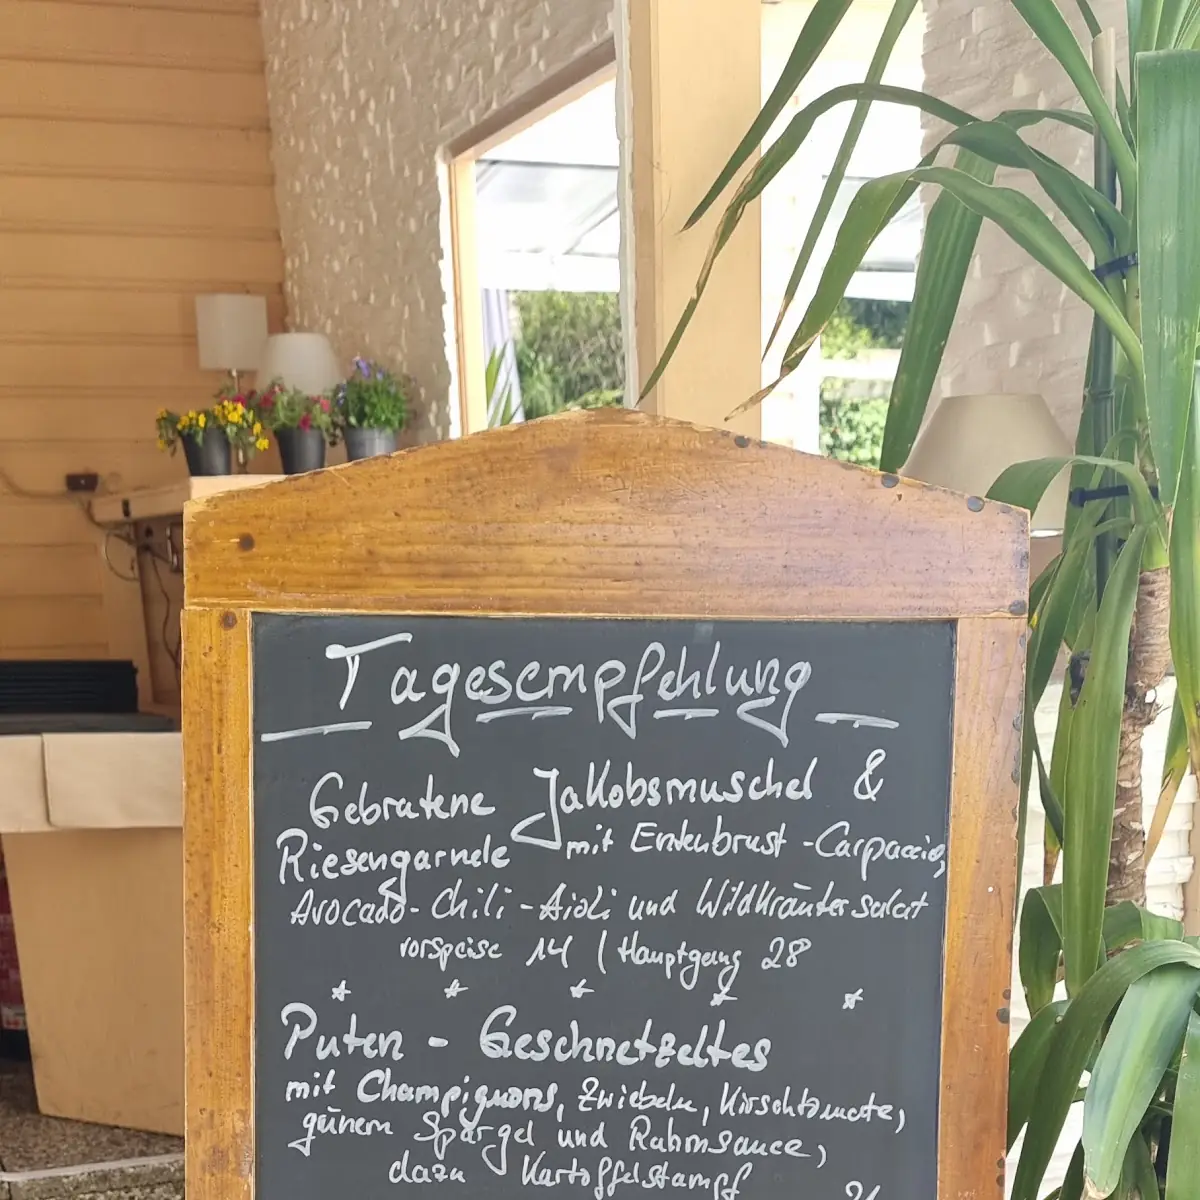 Tagesempfehlung
Gebratene Jakobsmuschel &
Riesengarnele mit Entenbrust-Carpaccio,
Avocado-Chili-Aioli und Wildkräutersalat
vorspeise 14 / Hauptgang 28
Puten - Geschnetzeltes
mit Champignons, Zwiebeln, Kirschtomate,
günem Spargel und Rahmsauce,
dazu Kartoffelstampf